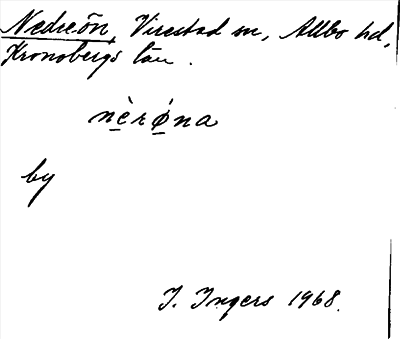 Nedreön, Virestad sn, Allbo hd,
Kronobergs län.
nèrǿna
by
I. Ingers 1968.